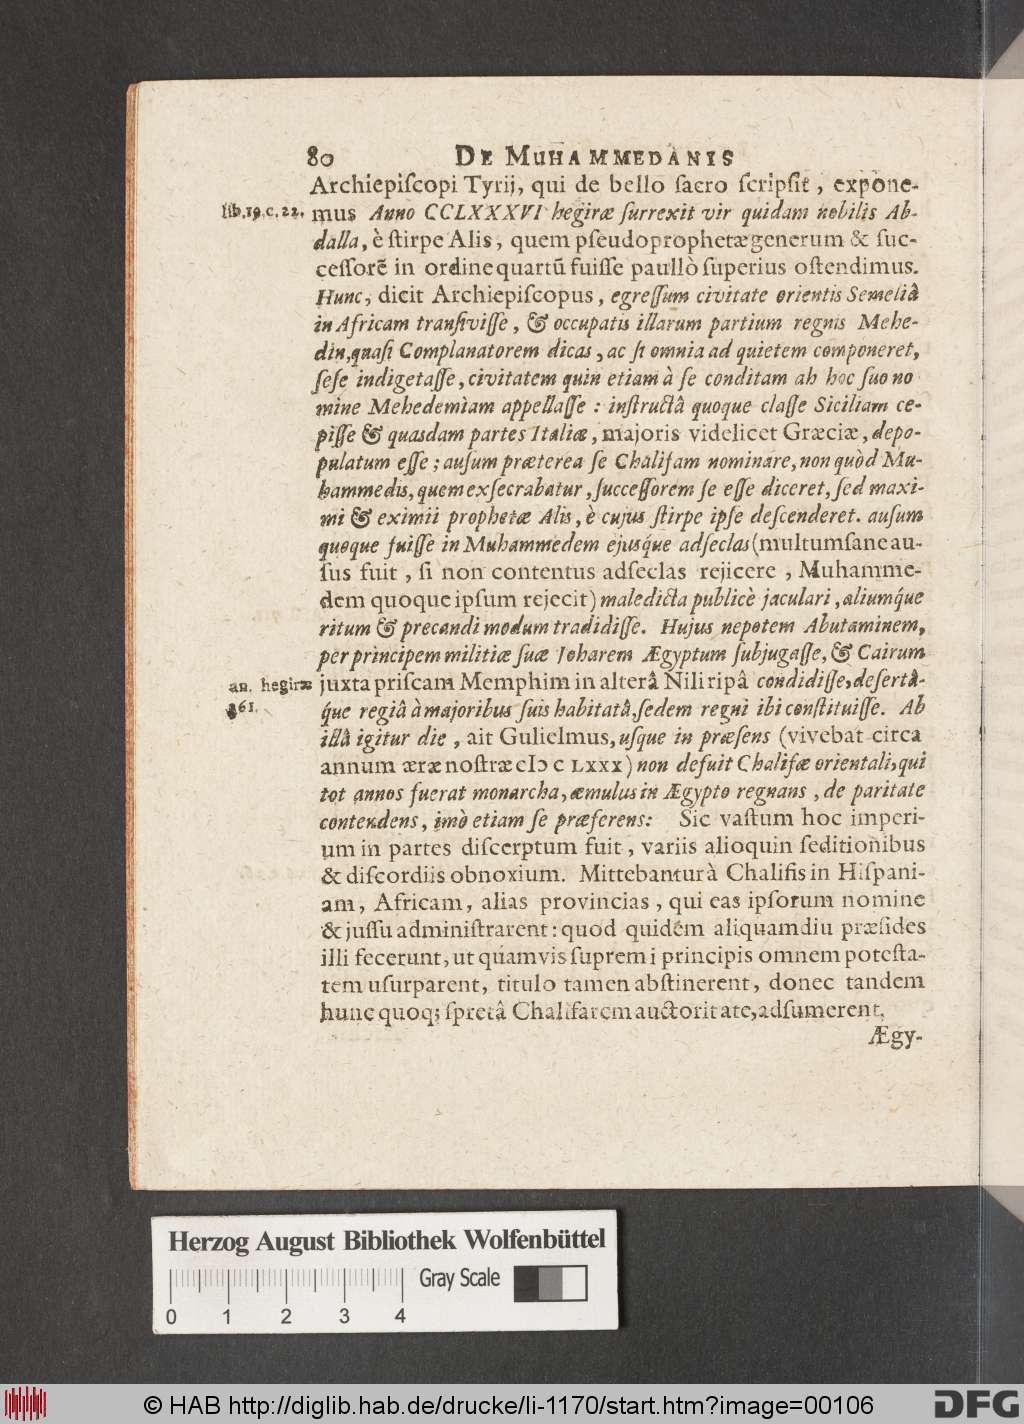 80 DE MUHAMMEDANIS
Archiepiſcopi Tyrij, qui de bello ſacro ſcripſit, expone-
lib.19.c.22. mus Anno CCLXXXVI hegiræ ſurrexit vir quidam nobilis Ab-
dalla, è ſtirpe Alis, quem pſeudoprophetæ generum & ſuc-
ceſſorẽ in ordine quartũ fuiſſe paullò ſuperius oſtendimus.
Hunc, dicit Archiepiſcopus, egreſſum civitate orientis Semeliâ
in Africam tranſiviſſe, & occupatis illarum partium regnis Mehe-
din, quaſi Complanatorem dicas, ac ſi omnia ad quietem componeret,
ſeſe indigetaſſe, civitatem quin etiam à ſe conditam ab hoc ſuo no
mine Mehedemìam appellaſſe : inſtructâ quoque claſſe Siciliam ce-
piſſe & quasdam partes Italiæ, majoris videlicet Græciæ, depo-
pulatum eſſe ; auſum præterea ſe Chalifam nominare, non quòd Mu-
hammedis, quem exſecrabatur, ſucceſſorem ſe eſſe diceret, ſed maxi-
mi & eximii prophetæ Alis, è cujus ſtirpe ipſe deſcenderet. auſum
quoque fuiſſe in Muhammedem ejusq́ue adſeclas (multum ſane au-
ſus fuit, ſi non contentus adſeclas rejicere, Muhamme-
dem quoque ipſum rejecit) maledicta publicè jaculari, aliumq́ue
ritum & precandi modum tradidiſſe. Hujus nepotem Abutaminem,
per principem militiæ ſuæ Joharem Ægyptum ſubjugaſſe, & Cairum
an. hegiræ juxta priſcam Memphim in alterâ Nili ripâ condidiſſe, deſertâ-
361. q́ue regiâ à majoribus ſuis habitatâ, ſedem regni ibi conſtituiſſe. Ab
illâ igitur die, ait Gulielmus, uſque in præſens (vivebat circa
annum æræ noſtræ cIɔ c LXXX) non defuit Chalifæ orientali, qui
tot annos fuerat monarcha, æmulus in Ægypto regnans, de paritate
contendens, imò etiam ſe præferens: Sic vaſtum hoc imperi-
um in partes diſcerptum fuit, variis alioquin ſeditionibus
& diſcordiis obnoxium. Mittebantur à Chalifis in Hiſpani-
am, Africam, alias provincias, qui eas ipſorum nomine
& juſſu adminiſtrarent: quod quidem aliquamdiu præſides
illi fecerunt, ut quamvis ſupremi principis omnem poteſta-
tem uſurparent, titulo tamen abſtinerent, donec tandem
hunc quoq; ſpretâ Chalifarem auctoritate, adſumerent.
Ægy-
Herzog August Bibliothek Wolfenbüttel
Gray Scale
0 1 2 3 4
© HAB http://diglib.hab.de/drucke/li-1170/start.htm?image=00106
DFG